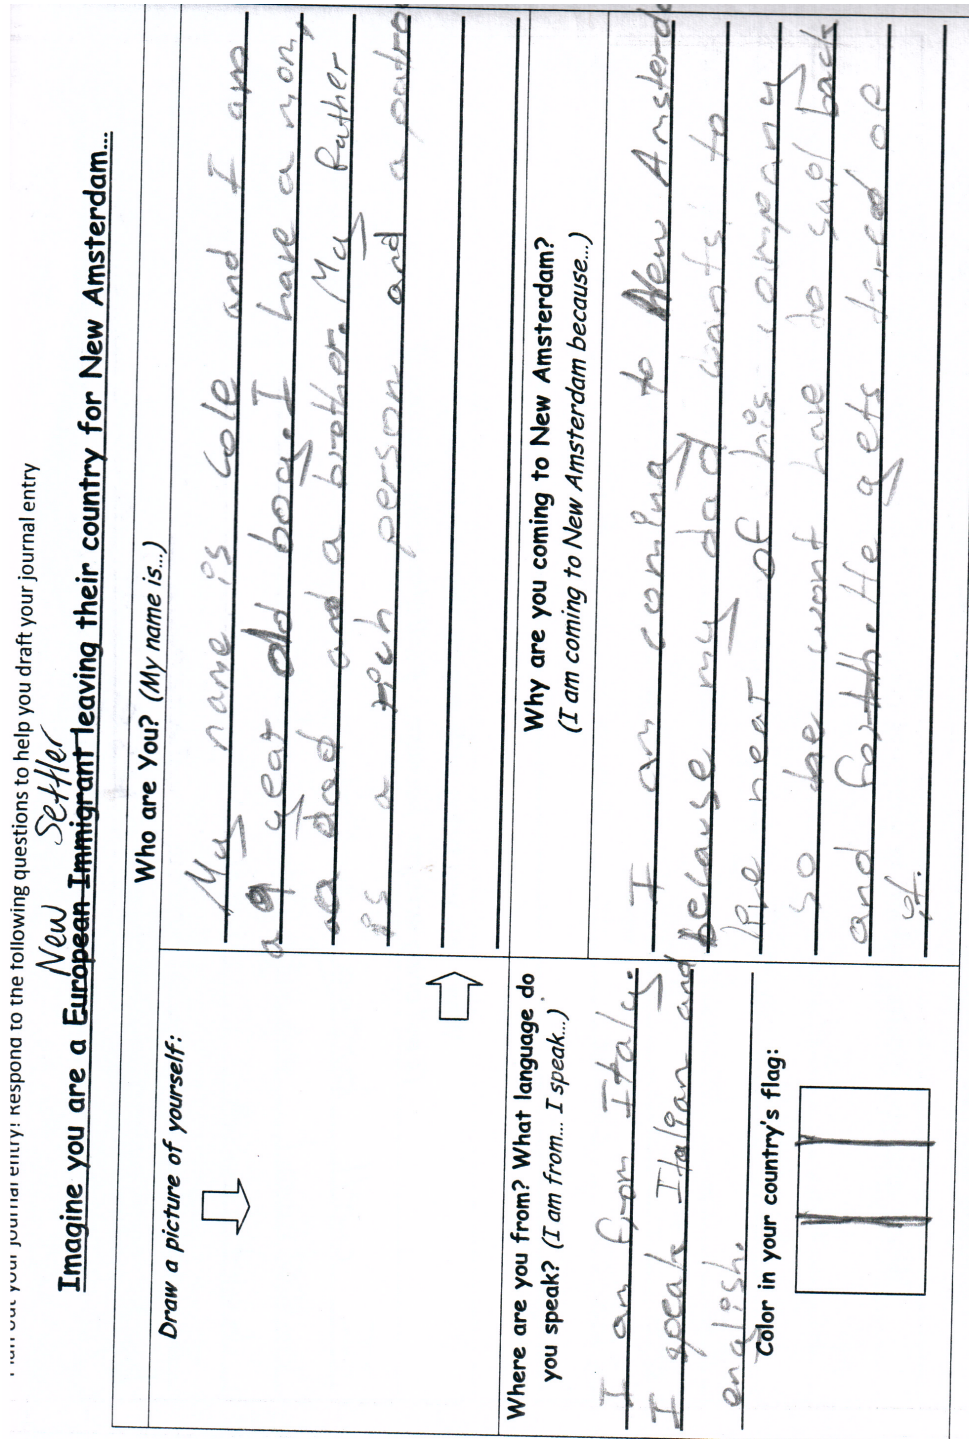 Plan out your journal entry! Respond to the following questions to help you draft your journal entry
New Settler
Imagine you are a European Immigrant leaving their country for New Amsterdam...
Draw a picture of yourself:
Who are You? (My name is...)
My name is Cole and I am
a 9 year old boy. I have a mom,
a dad and a brother. My father
is a rich person and a patro
Where are you from? What language do
you speak? (I am from... I speak...)
I am from Italy.
I speak Italian and
english.
Color in your country's flag:
Why are you coming to New Amsterdam?
(I am coming to New Amsterdam because...)
I am coming to New Amsterd
because my dad wants to
live near of his company
so he wont have to sail back
and forth. He gets
it.